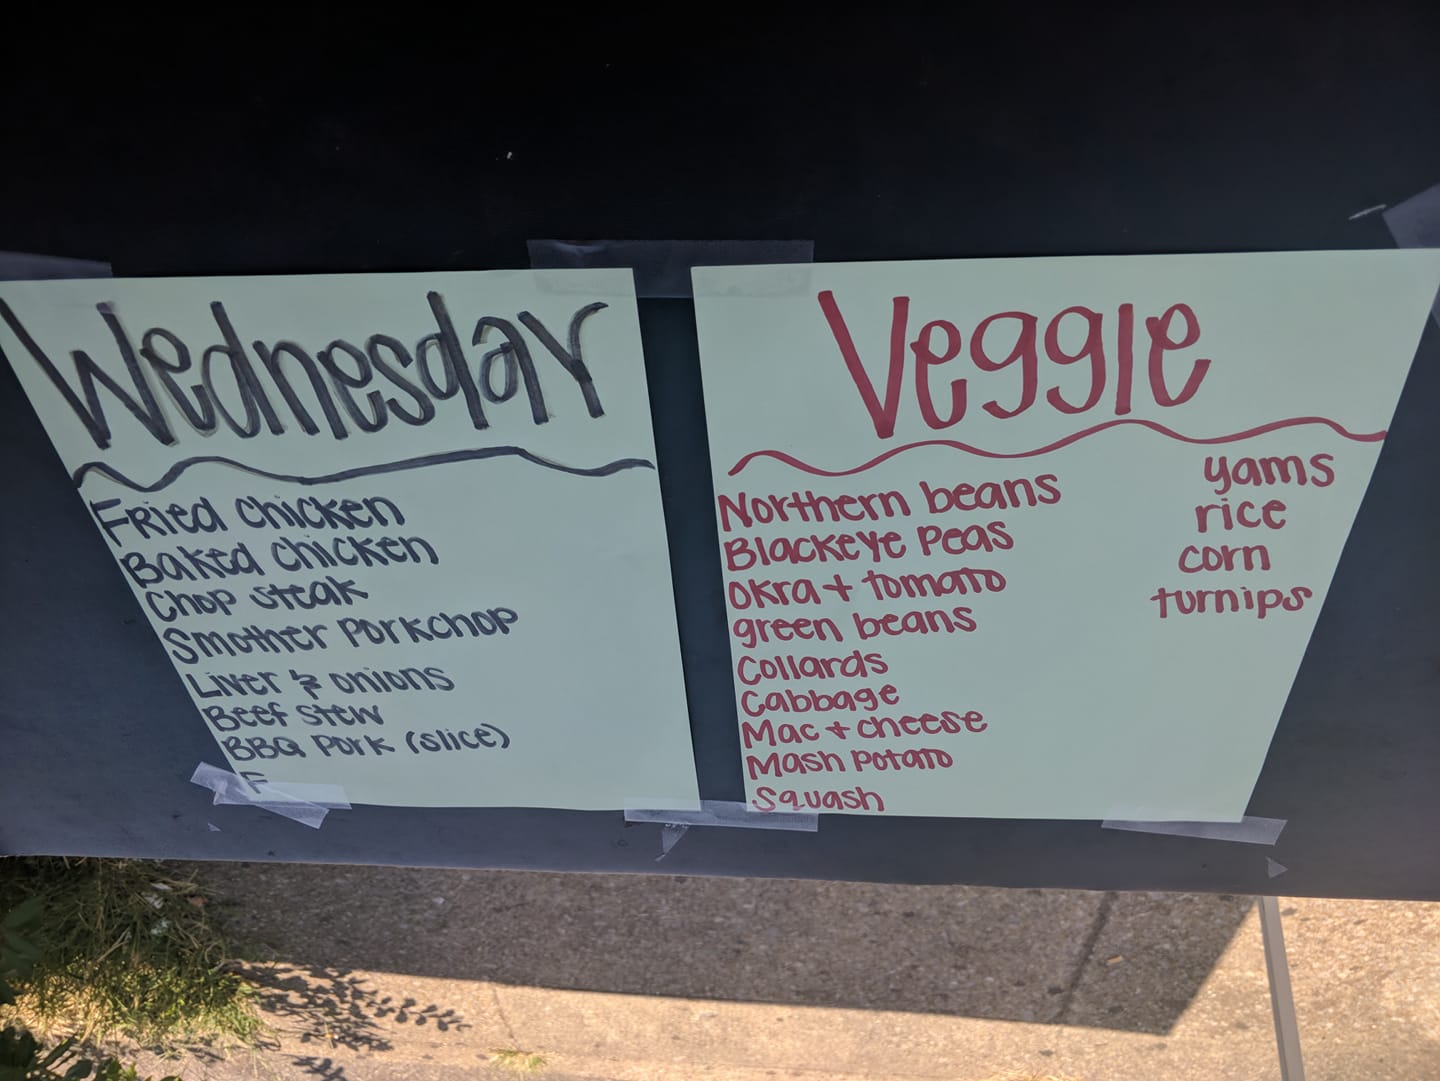 Wednesday
Fried chicken
Baked chicken
Chop steak
Smother Porkchop
Liver & onions
Beef stew
BBQ Pork (slice)
F
Veggie
Northern beans
Blackeye Peas
Okra + tomato
green beans
Collards
Cabbage
Mac + cheese
Mash Potato
Squash
yams
rice
corn
turnips